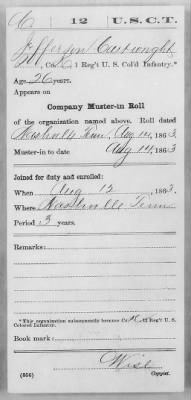 C 12 U.S.C.T.
Jefferson Cartwright
Co. 1 Reg't U. S. Col'd Infantry.*
Age 26 years.
Appears on
Company Muster-in Roll
of the organization named above. Roll dated
Nashville Tenn, Aug 14, 1863.
Muster-in to date Aug 14, 1863
Joined for duty and enrolled:
When Aug 12, 1863.
Where Nashville Tenn
Period 3 years.
Remarks:
*This organization subsequently became Co. 12 Reg't U. S.
Colored Infantry.
Book mark:
Wise
(356) Copyist.